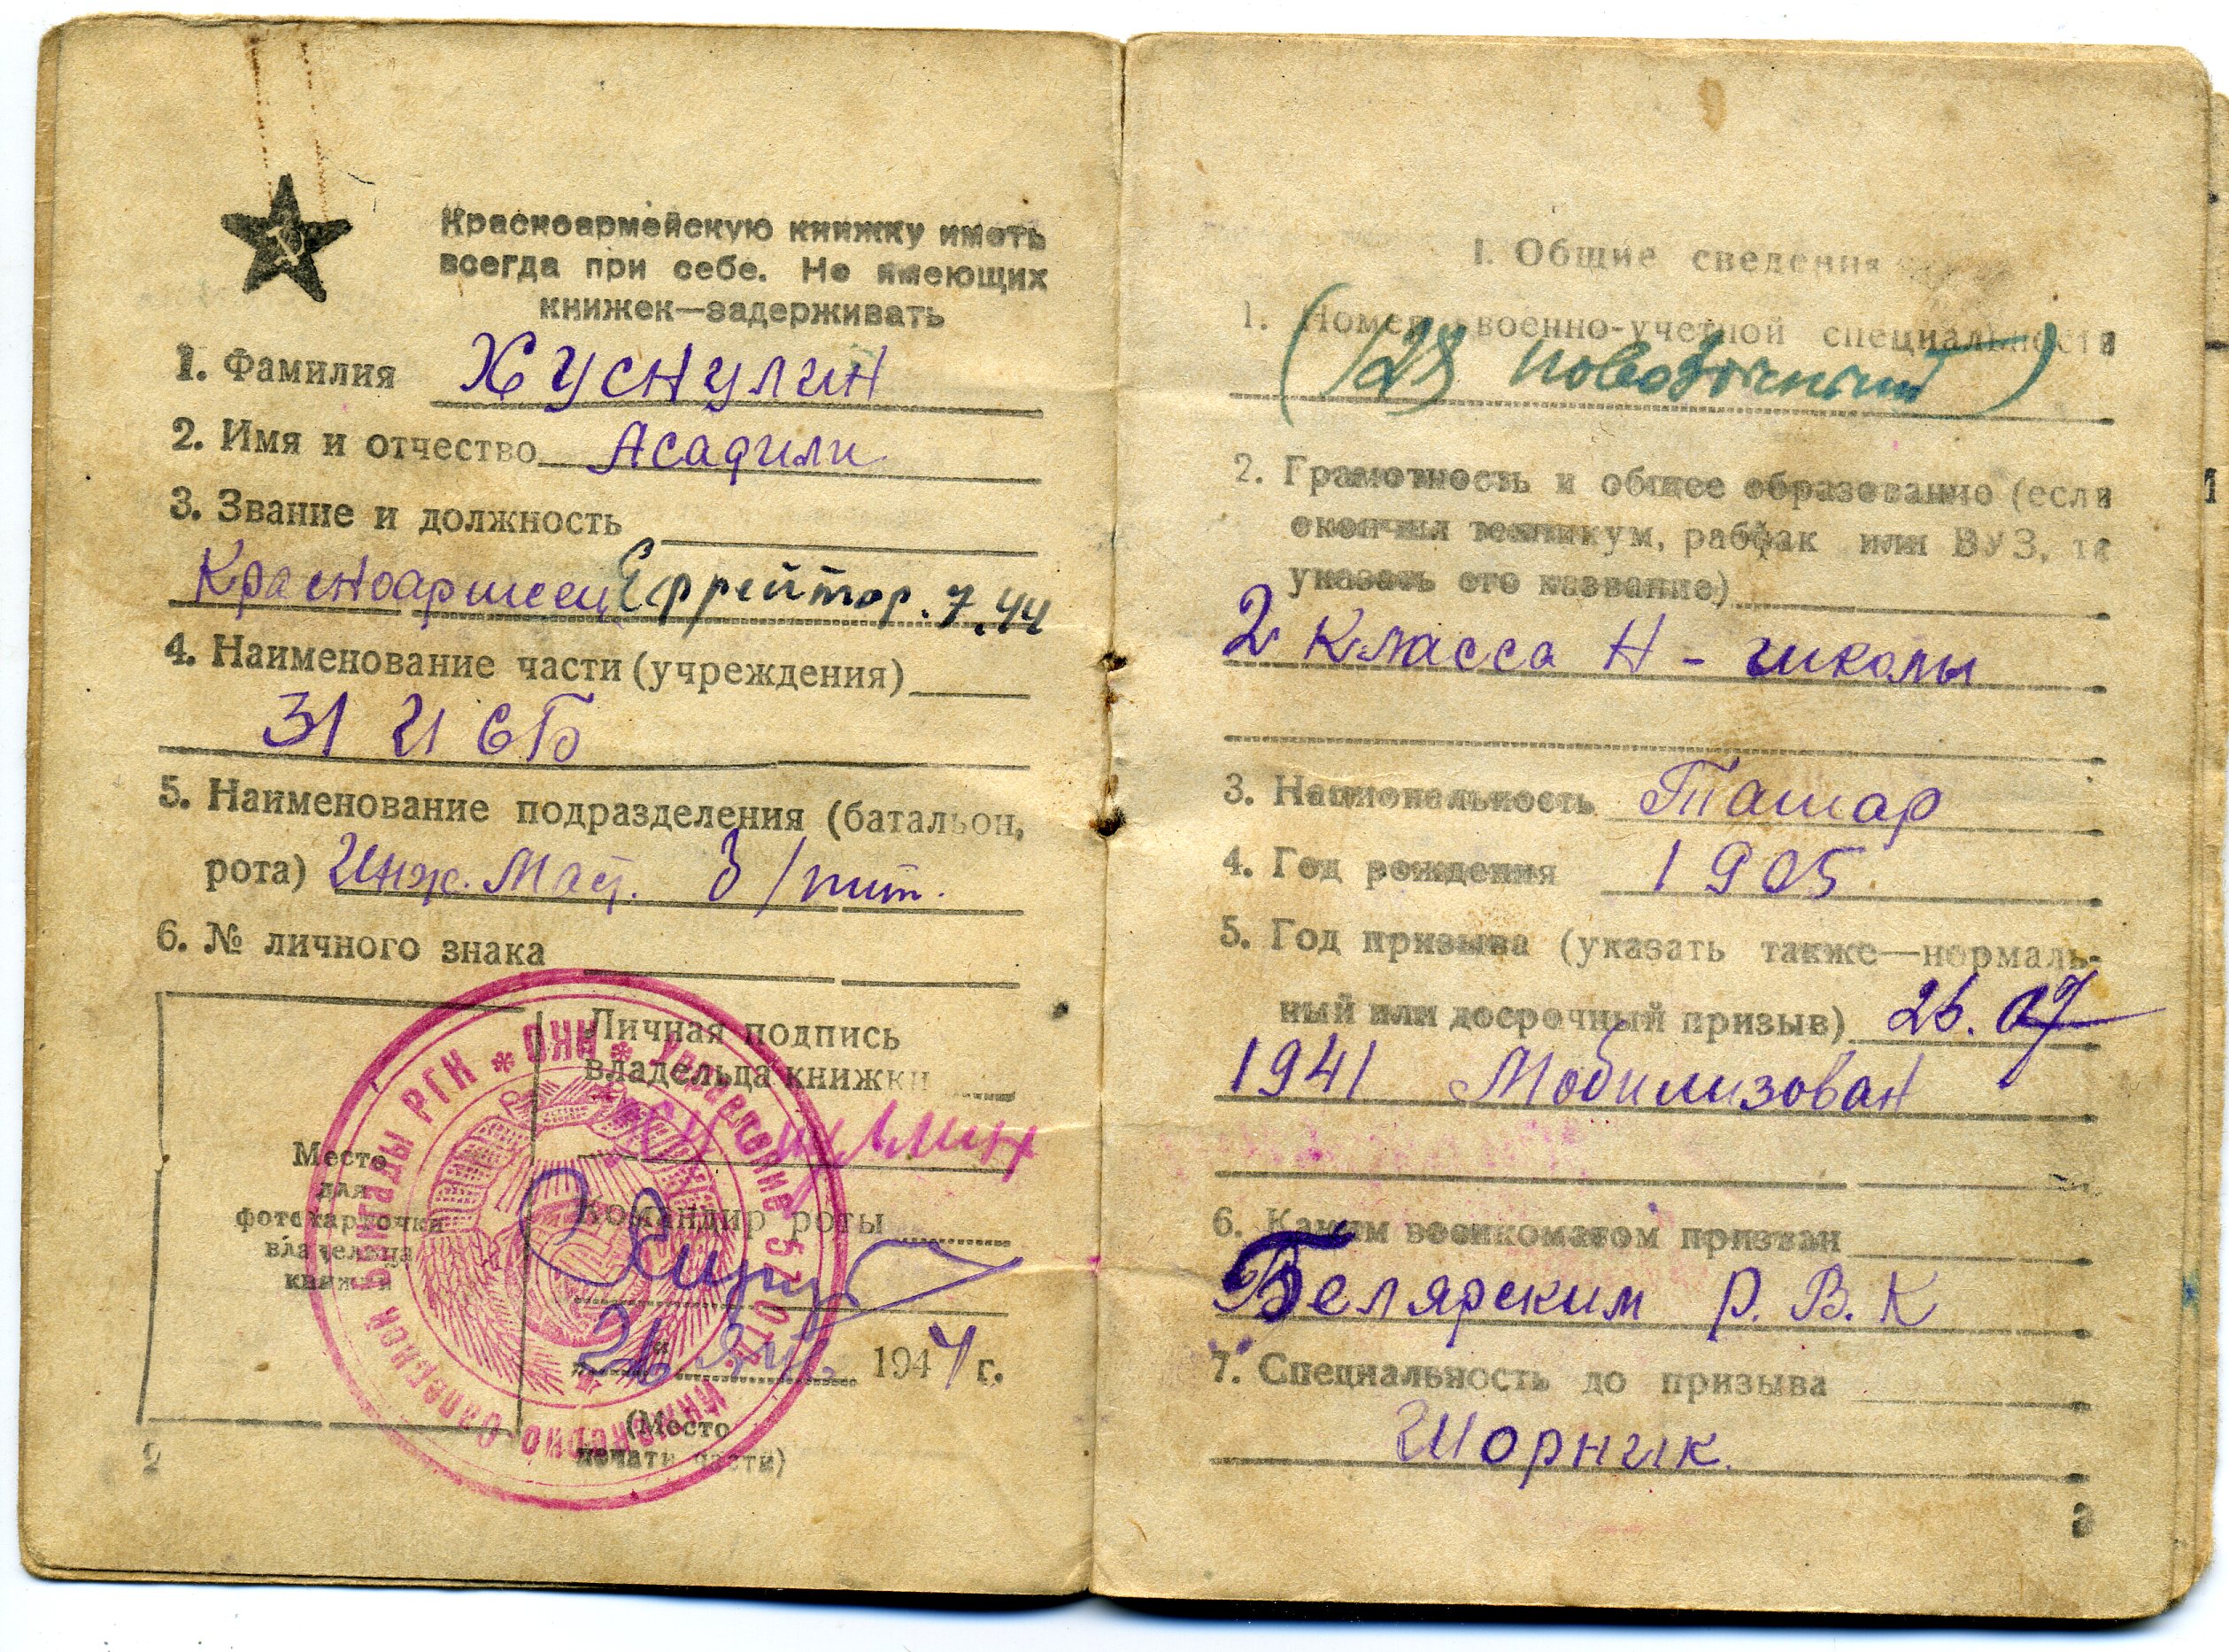 Красноармейскую книжку иметь
всегда при себе. Не имеющих
книжек—задерживать
1. Фамилия Хуснулин
2. Имя и отчество Асадили
3. Звание и должность
Красноармеец Ефрейтор. 7.44
4. Наименование части (учреждения)
31 ИСБ
5. Наименование подразделения (батальон,
рота) Инж. 3/пит.
6. № личного знака
Личная подпись
владельца книжки
Место
для
фотокарточки
владельца
книжки
Командир роты
„26“ 1944 г.
(Место
печати части)
2
* НКО * Управление 57 отд. Инженерно Саперной Бригады РГК
I. Общие сведения
1. Номер военно-учетной специальности
(128 повозочный)
2. Грамотность и общее образование (если
окончил техникум, рабфак или ВУЗ, то
указать его название)
2 класса Н - школы
3. Национальность Татар
4. Год рождения 1905
5. Год призыва (указать также—нормаль-
ный или досрочный призыв) 26. 07
1941 Мобилизован
6. Каким военкоматом призван
Белярским Р.В.К
7. Специальность до призыва
Шорник.
3